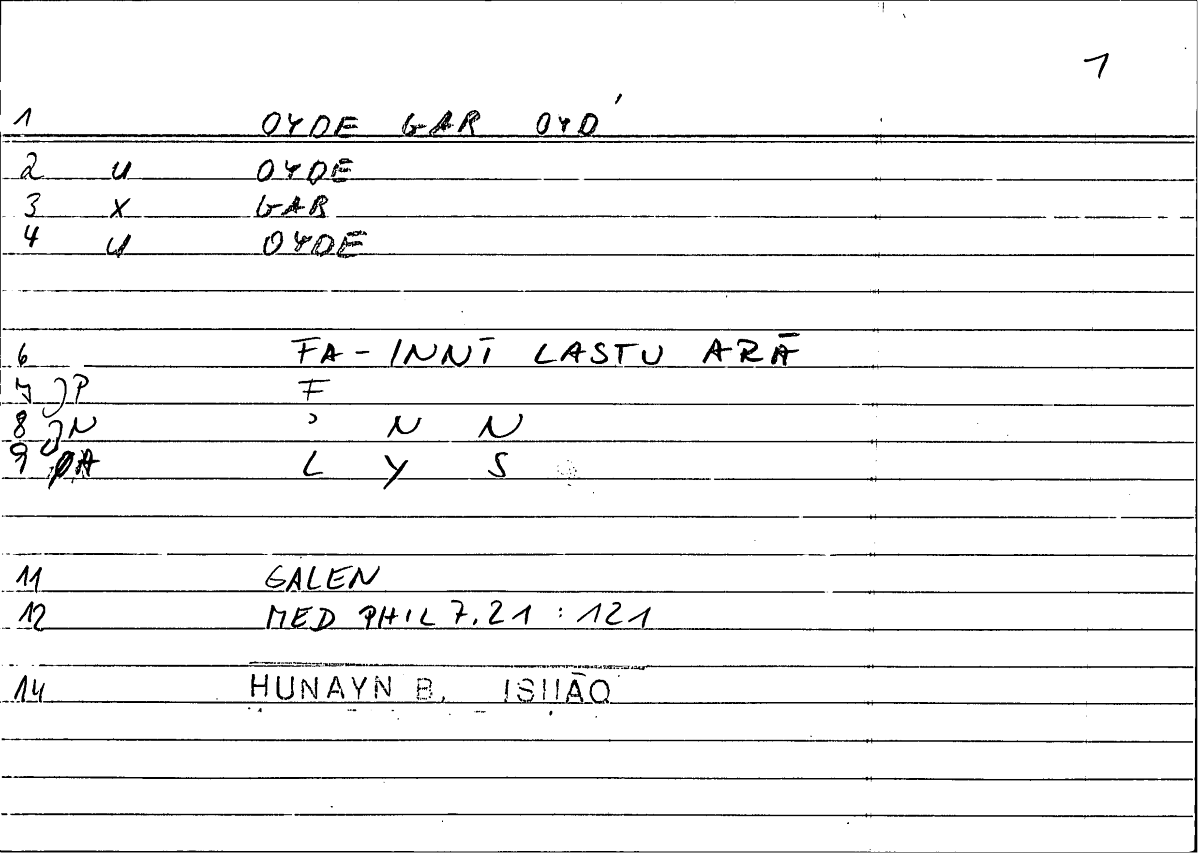 1
1 OYDE GAR OYD'
2 U OYDE
3 X GAR
4 U OYDE
6 FA-INNĪ LASTU ARĀ
7 JP F
8 JN ʾ N N
9 PA L Y S
11 GALEN
12 MED PHIL 7.21 : 121
14 HUNAYN B. ISHĀQ